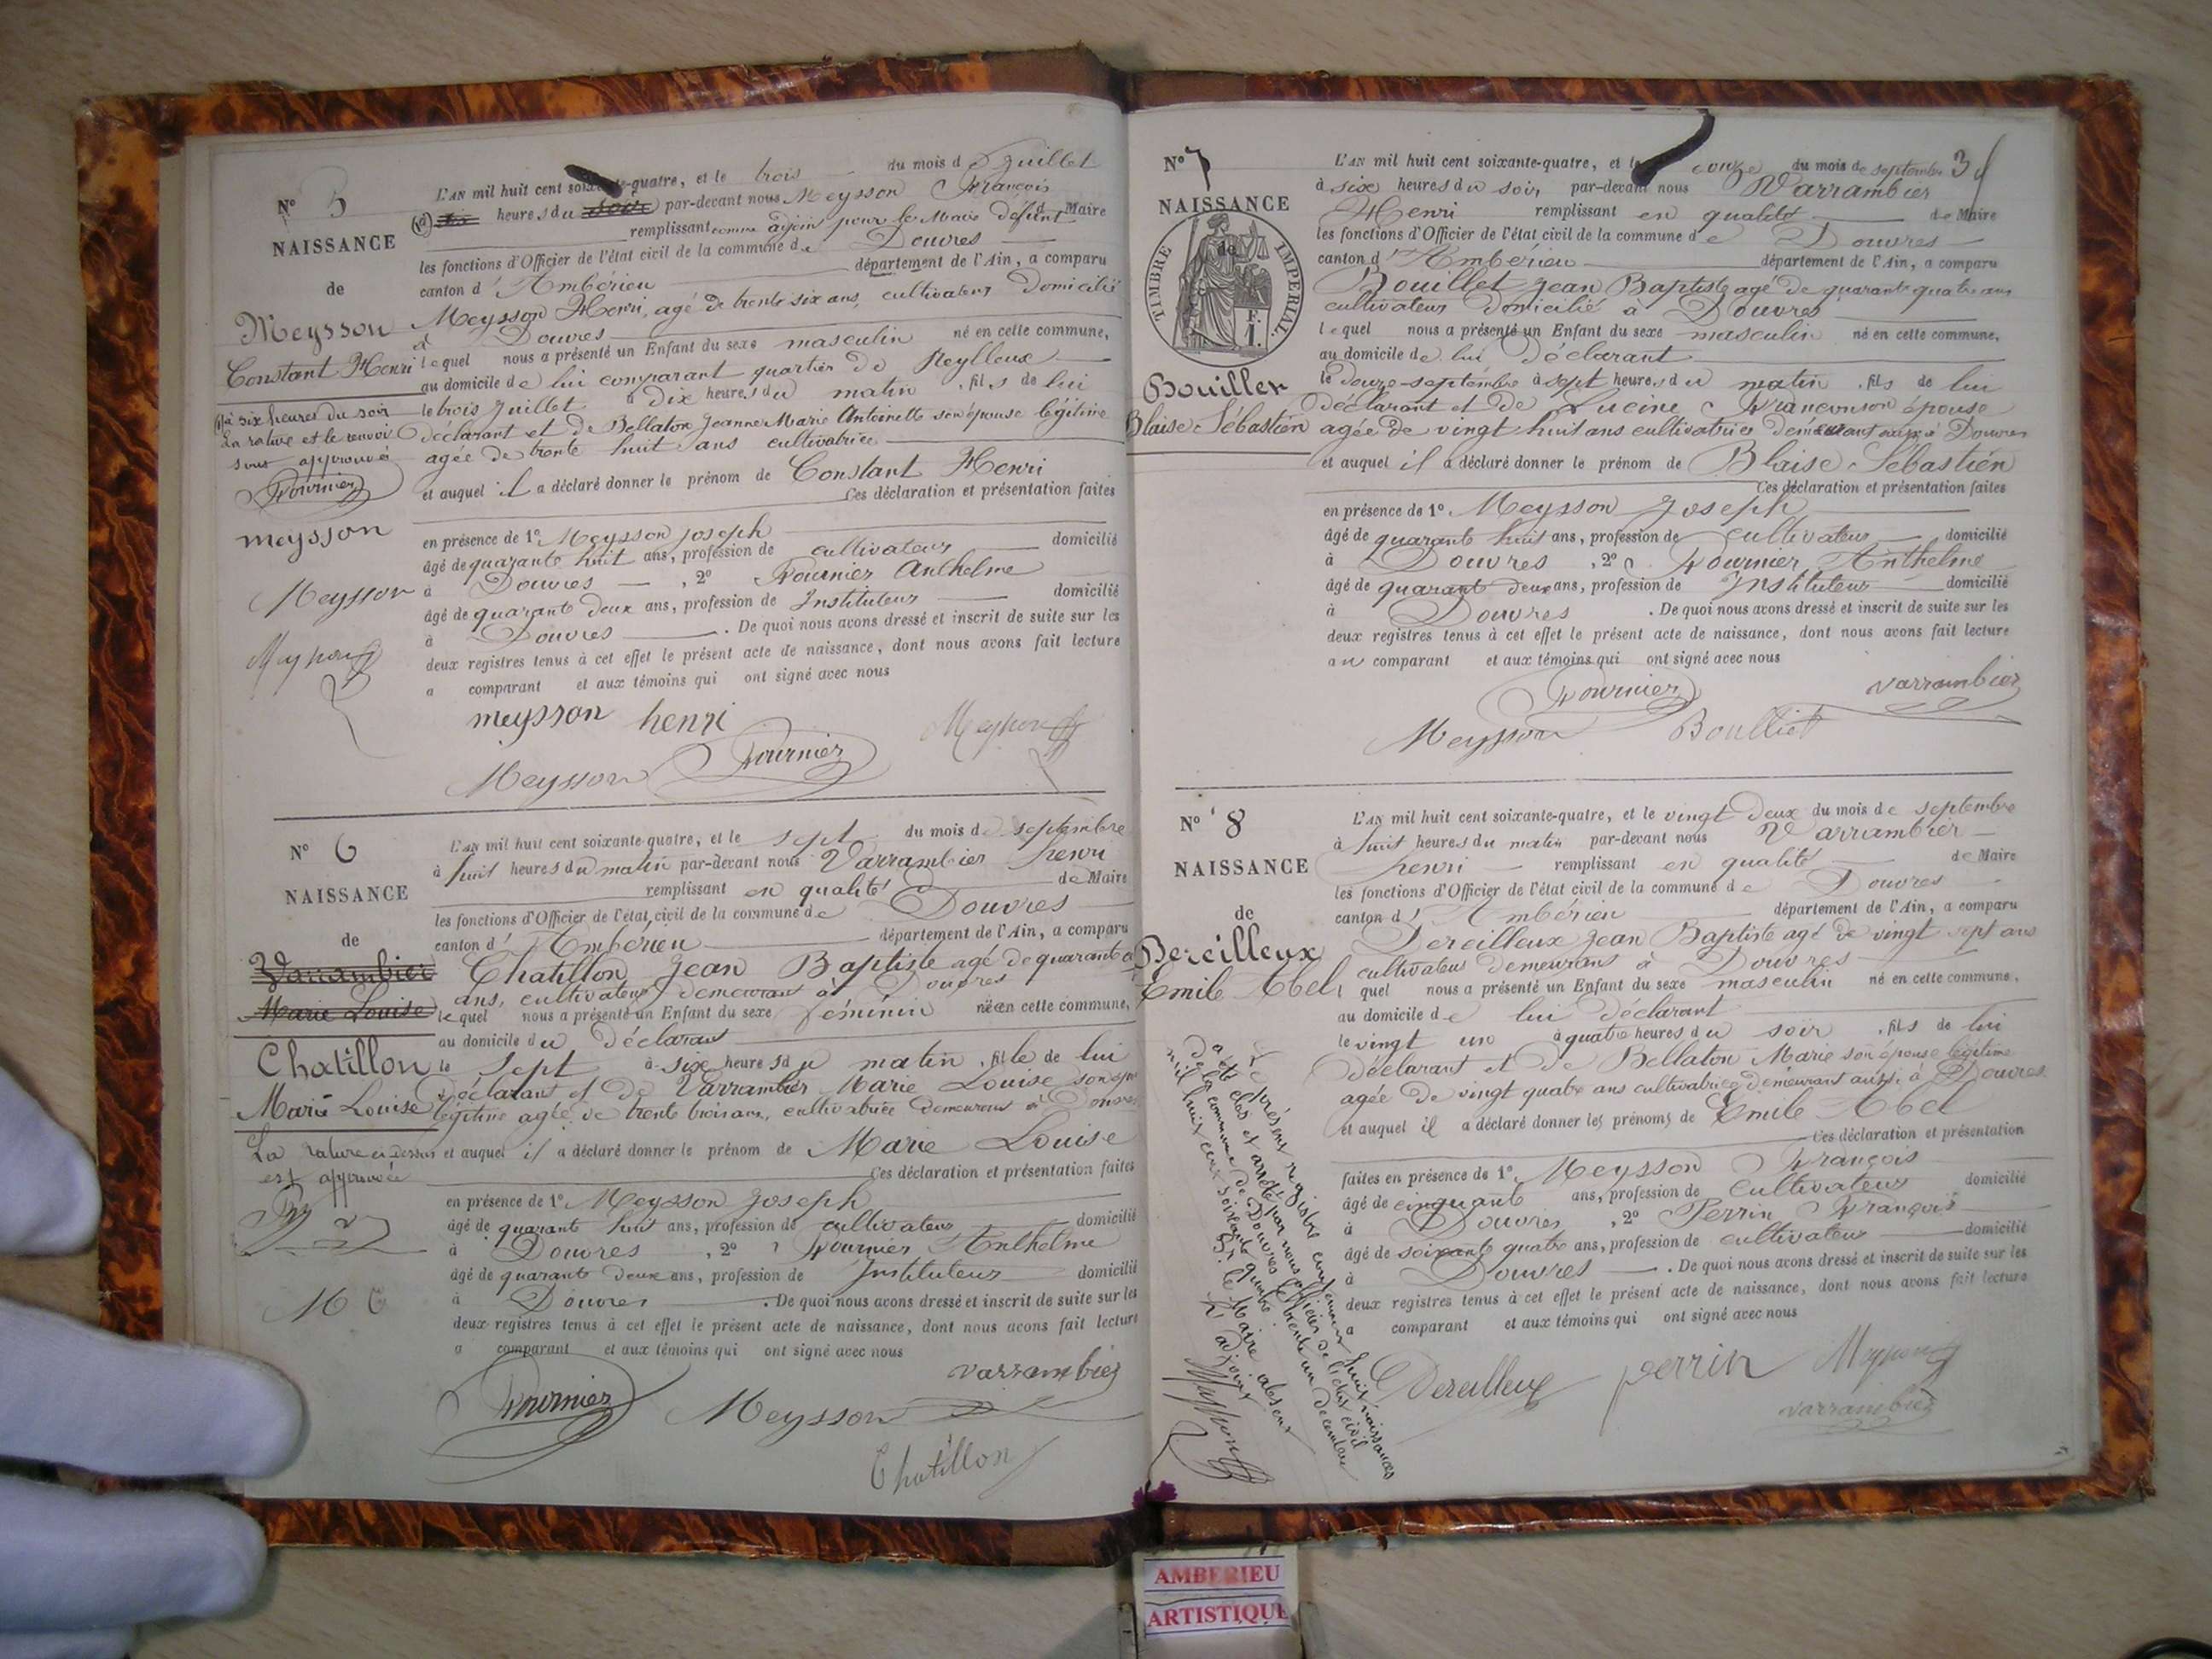 N° 5
NAISSANCE
de
Meysson
Constant Henri
(1) à six heures du soir
La rature et le renvoi
sont approuvés
Fournier
meysson
Meysson
L'AN mil huit cent soixante-quatre, et le trois du mois de Juillet
(1) heures du soir par-devant nous Meysson François
remplissant comme adjoint pour le Maire défunt d Maire
les fonctions d'Officier de l'état civil de la commune de Douvres
canton d'Ambérieu département de l'Ain, a comparu
Meysson Henri, agé de trente six ans, cultivateur domicilié
à Douvres
lequel nous a présenté un Enfant du sexe masculin né en cette commune,
au domicile de lui comparant quartier de
le trois Juillet à dix heures du matin, fils de lui
déclarant et de Bellaton Jeanne Marie Antoinette son épouse légitime
agée de trente huit ans cultivatrice
et auquel il a déclaré donner le prénom de Constant Henri
Ces déclaration et présentation faites
en présence de 1° Meysson Joseph
âgé de quarante huit ans, profession de cultivateur domicilié
à Douvres, 2° Fournier Anthelme
âgé de quarante deux ans, profession de Instituteur domicilié
à Douvres. De quoi nous avons dressé et inscrit de suite sur les
deux registres tenus à cet effet le présent acte de naissance, dont nous avons fait lecture
a comparant et aux témoins qui ont signé avec nous
meysson henri
Meysson Fournier
N° 6
NAISSANCE
de
Varrambier
Marie Louise
Chatillon
Marie Louise
La rature ci dessus
est approuvée
M C
L'AN mil huit cent soixante-quatre, et le sept du mois de septembre
à huit heures du matin par-devant nous Varrambier henri
remplissant en qualité de Maire
les fonctions d'Officier de l'état civil de la commune de Douvres
canton d'Ambérieu département de l'Ain, a comparu
Chatillon Jean Baptiste agé de quarante
ans, cultivateur demeurant à Douvres
lequel nous a présenté un Enfant du sexe féminin née en cette commune,
au domicile du déclarant
le sept à six heures du matin, fille de lui
déclarant et de Varrambier Marie Louise son
légitime agée de trente trois ans, cultivatrice demeurant à Douvres
et auquel il a déclaré donner le prénom de Marie Louise
Ces déclaration et présentation faites
en présence de 1° Meysson Joseph
âgé de quarante huit ans, profession de cultivateur domicilié
à Douvres, 2° Fournier Anthelme
âgé de quarante deux ans, profession de Instituteur domicilié
à Douvres. De quoi nous avons dressé et inscrit de suite sur les
deux registres tenus à cet effet le présent acte de naissance, dont nous avons fait lecture
a comparant et aux témoins qui ont signé avec nous
varrambier
Fournier Meysson
Chatillon
N° 7
NAISSANCE
de
TIMBRE IMPERIAL
Bouillet
Blaise Sébastien
3
L'AN mil huit cent soixante-quatre, et le du mois de septembre
à six heures du soir, par-devant nous Varrambier
Henri remplissant en qualité de Maire
les fonctions d'Officier de l'état civil de la commune de Douvres
canton d'Ambérieu département de l'Ain, a comparu
Bouillet Jean Baptiste agé de quarante quatre ans
cultivateur domicilié à Douvres
lequel nous a présenté un Enfant du sexe masculin né en cette commune,
au domicile de lui déclarant
le douze septembre à sept heures du matin, fils de lui
déclarant et de Lucine épouse
agée de vingt huit ans cultivatrice demeurant aussi à Douvres
et auquel il a déclaré donner le prénom de Blaise Sébastien
Ces déclaration et présentation faites
en présence de 1° Meysson Joseph
âgé de quarante huit ans, profession de cultivateur domicilié
à Douvres, 2° Fournier Anthelme
âgé de quarant deux ans, profession de Instituteur domicilié
à Douvres. De quoi nous avons dressé et inscrit de suite sur les
deux registres tenus à cet effet le présent acte de naissance, dont nous avons fait lecture
au comparant et aux témoins qui ont signé avec nous
Fournier varrambier
Meysson Boulliet
N° 8
NAISSANCE
de
Dereilleux
Emile Abel
L'AN mil huit cent soixante-quatre, et le vingt deux du mois de septembre
à huit heures du matin par-devant nous Varrambier
henri remplissant en qualité de Maire
les fonctions d'Officier de l'état civil de la commune de Douvres
canton d'Ambérieu département de l'Ain, a comparu
Dereilleux Jean Baptiste agé de vingt sept ans
cultivateur demeurant à Douvres
lequel nous a présenté un Enfant du sexe masculin né en cette commune,
au domicile de lui déclarant
le vingt un à quatre heures du soir, fils de lui
déclarant et de Bellaton Marie son épouse légitime
agée de vingt quatre ans cultivatrice demeurant aussi à Douvres
et auquel il a déclaré donner les prénoms de Emile Abel
Ces déclaration et présentation
faites en présence de 1° Meysson François
âgé de cinquante ans, profession de cultivateur domicilié
à Douvres, 2° Perrin François
âgé de soixante quatre ans, profession de cultivateur domicilié
à Douvres. De quoi nous avons dressé et inscrit de suite sur les
deux registres tenus à cet effet le présent acte de naissance, dont nous avons fait lecture
a comparant et aux témoins qui ont signé avec nous
Dereilleux perrin
varrambier
Le présent registre contenant huit naissances
a été clos et arrêté par nous officier de l'état civil
de la commune de Douvres le trente un décembre
mil huit cent soixante quatre
Pr le Maire absent
L'adjoint
AMBERIEU
ARTISTIQUE